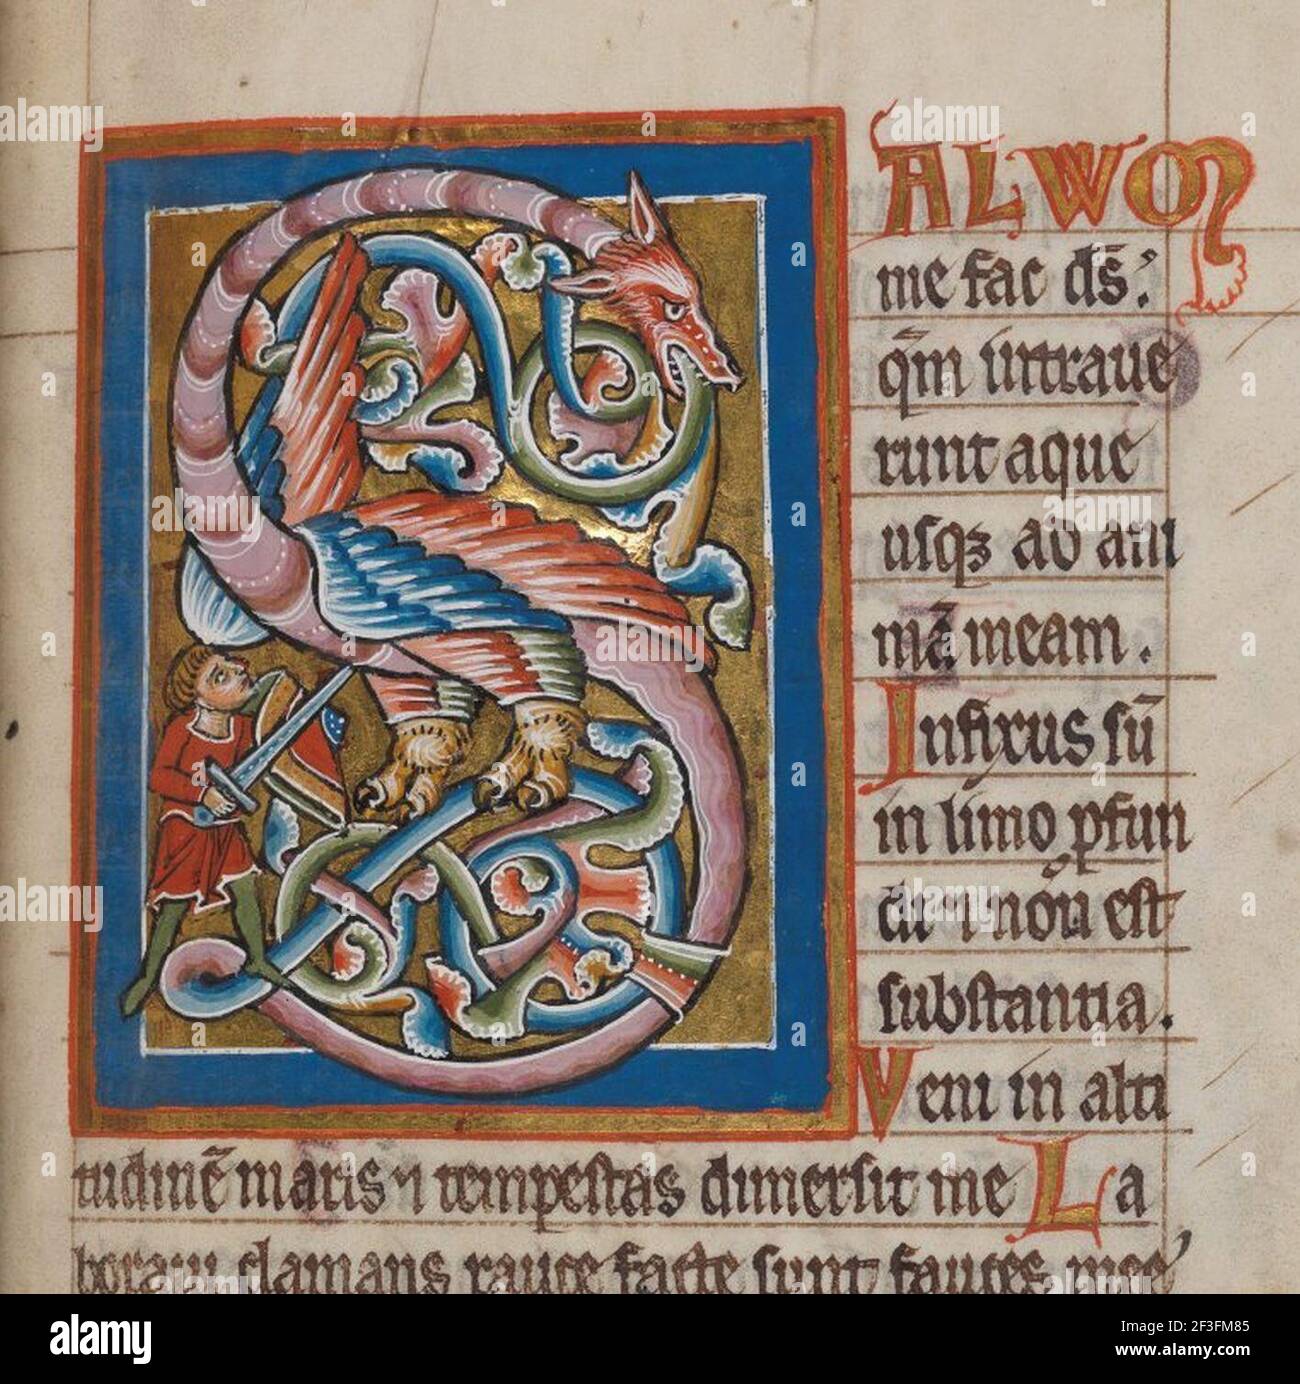 SALWM
me fac d̄s:
qm̄ intraue
runt aque
usqꝫ ad ani
mā meam.
Infixus sū
in limo ꝓfun
di ⁊ nō est
substantia.
Veni in alti
tudinē maris ⁊ tempestas dimersit me La
boraui clamans rauce facte sunt fauces mee
alamy
Image ID: 2F3FM85
www.alamy.com